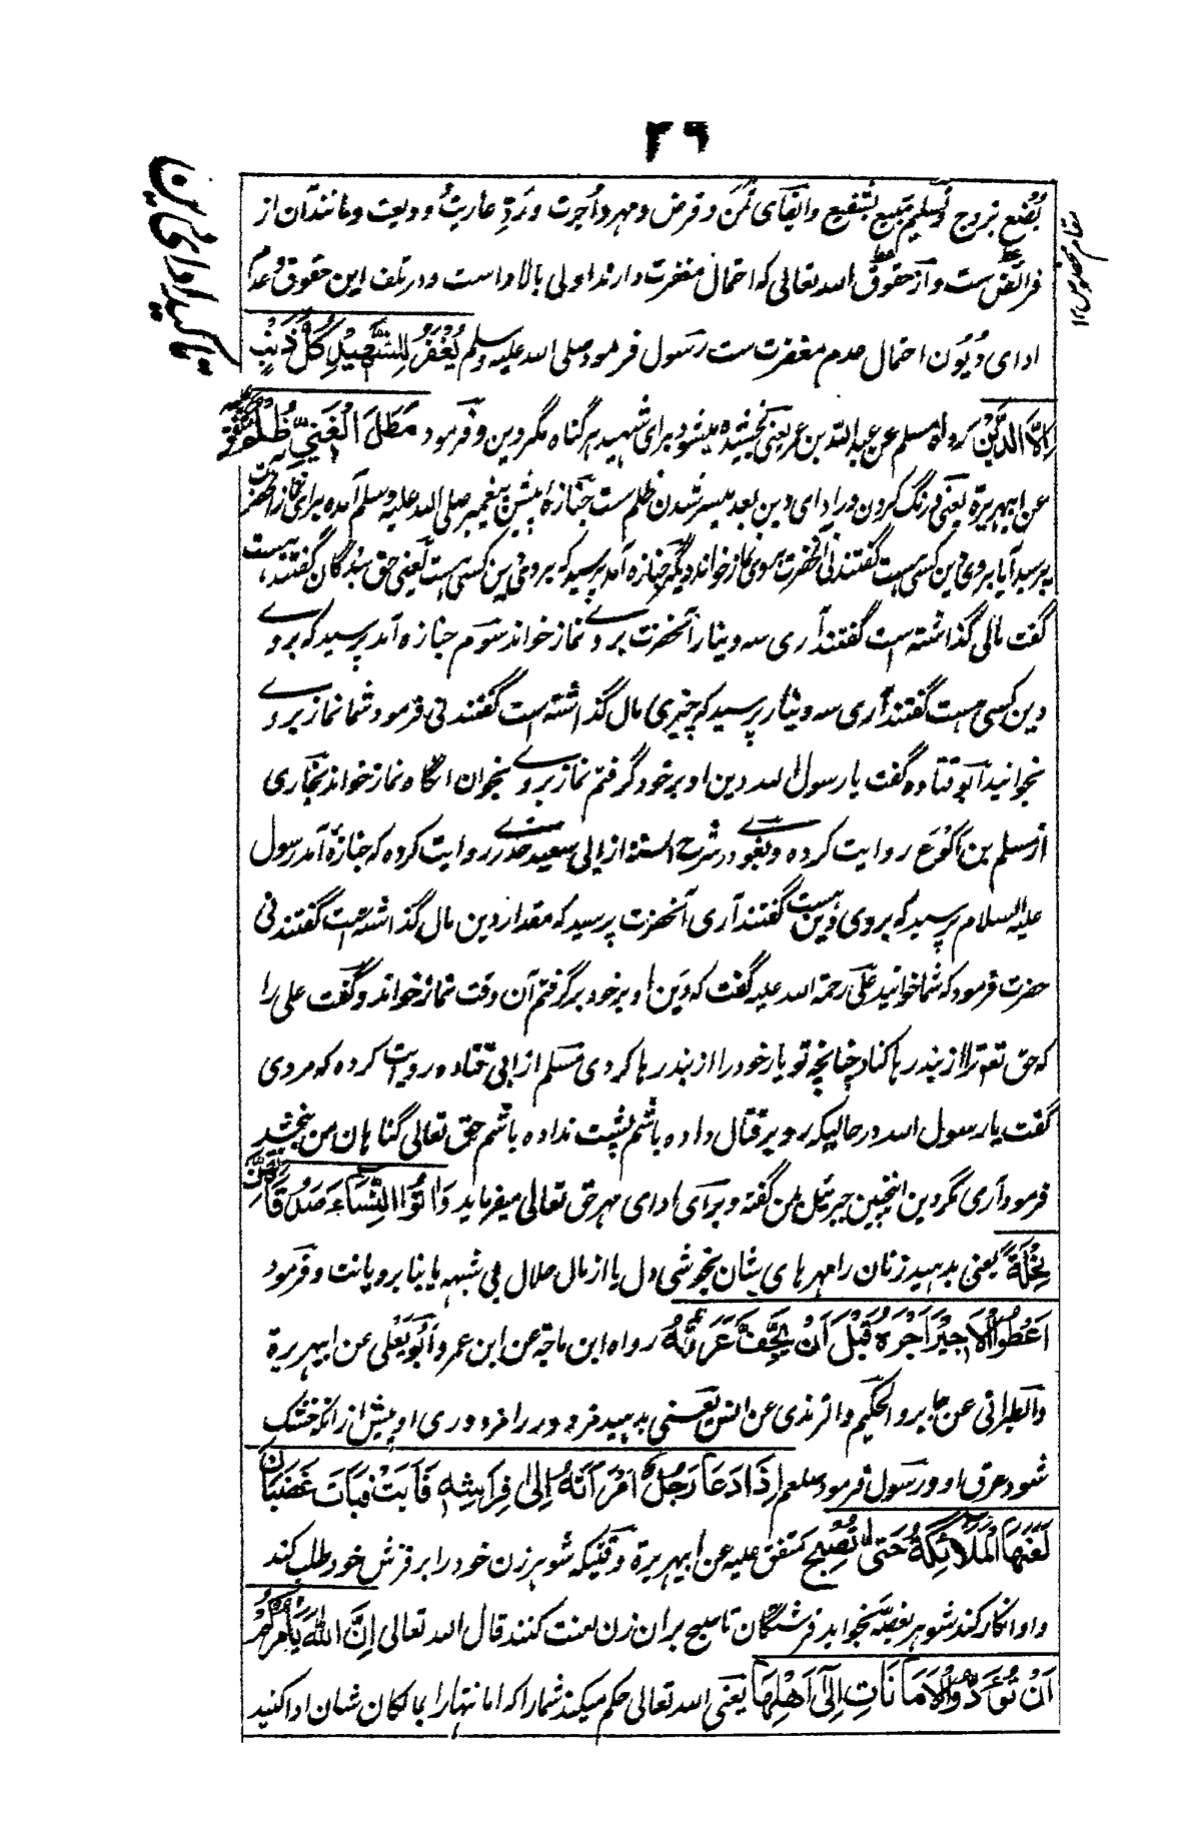 ۲۹
بُضع بزوج و تسلیم مبیع بشفیع و ایفای ثمن و قرض و مهر و اُجرت و ردِّ عاریت و ودیعت و مانند آن از
فرائض ست و از حقوق الله تعالی که احتمال مغفرت دارند اولی بالاداست و در تلف این حقوق و عدم
ادای دُیُون احتمال عدم مغفرت ست رسول فرمود صلی الله علیه وسلم یُغْفَرُ لِلشَّهِیْدِ کُلُّ ذَنْبٍ
اِلَّا الدَّیْنَ رواه مسلم عن عبدالله بن عمر یعنی بخشیده میشود برای شهید هر گناه مگر دین و فرمود مَطْلُ الْغَنِیِّ ظُلْمٌ متفق علیه
عن ابیهریرة یعنی درنگ کردن در ادای دین بعد میسر شدن ظلم ست جنازه پیش پیغمبر صلی الله علیه وسلم آمده برای نماز آنحضرت
پرسید آیا بروی دین کسی هست گفتند نی آنحضرت بروی نماز خواند دیگر جنازه آمد پرسید که بروی دین کسی هست یعنی حق بندگان گفتند هست
گفت مالی گذاشته است گفتند آری سه دینار آنحضرت بروے نماز خواند سوم جنازه آمد پرسید که بروے
دین کسی هست گفتند آری سه دینار پرسید که چیزی مال گذاشته است گفتند نی فرمود شما نماز بروے
بخوانید ابو قتاده گفت یا رسول الله دین او بر خود گرفتم نماز بروے بخوان انگاه نماز خواند بخاری
از سلم بن اکوَع روایت کرده و بغوے در شرح السنة از ابی سعید خدرے روایت کرده که جنازهٔ آمد رسول
علیه السلام پرسید که بروی دین هست گفتند آری آنحضرت پرسید که مقدار دین مال گذاشته است گفتند نی
حضرت فرمود که شما خوانید علی رحمة الله علیه گفت که دَین او بر خود برگرفتم آن وقت نماز خواند و گفت علی را
که حق تعالی ترا از بند رها کناد چنانچه تو یار خود را از بند رها کردی مسلم از ابی قتاده روایت کرده که مردی
گفت یا رسول الله در حالیکه رو بر قتال داده باشم پشت نداده باشم حق تعالی گناهان من بخشد
فرمود آری مگر دین اینچنین جبرئیل بمن گفته و برای ادای مهر حق تعالی میفرماید وَاٰتُوا النِّسَآءَ صَدُقَاتِهِنَّ
نِحْلَةً یعنی بدهید زنان را مهرهای شان بخوشی دل یا از مال حلال بی شبهه یا بنا بر دیانت و فرمود
اَعْطُوا الْاَجِیْرَ اَجْرَهُ قَبْلَ اَنْ یَّجِفَّ عَرَقُهُ رواه ابن ماجة عن ابن عمر و اَبُو یَعْلٰی عن ابیهریرة
والطبرانی عن جابر و الحکیم والترمذی عن انس یعنی بدهید مزدور را مزدوری او پیش از انکه خشک
شود عرق او و رسول فرمود صلعم اِذَا دَعَا رَجُلٌ امْرَأَتَهُ اِلٰی فِرَاشِهِ فَاَبَتْ فَبَاتَ غَضْبَانَ
لَعَنَتْهَا الْمَلَائِکَةُ حَتّٰی تُصْبِحَ متفق علیه عن ابیهریرة وقتیکه شوهر زن خود را بر فرش خود طلب کند
و او انکار کند شوهر بغصّه بخوابد فرشتگان تا صبح بران زن لعنت کنند قال الله تعالی اِنَّ اللّٰهَ یَاْمُرُکُمْ
اَنْ تُؤَدُّوا الْاَمَانَاتِ اِلٰٓی اَهْلِهَا یعنی الله تعالی حکم میکند شما را که امانتها را بمالکان شان ادا کنید
تاکید ادای دین